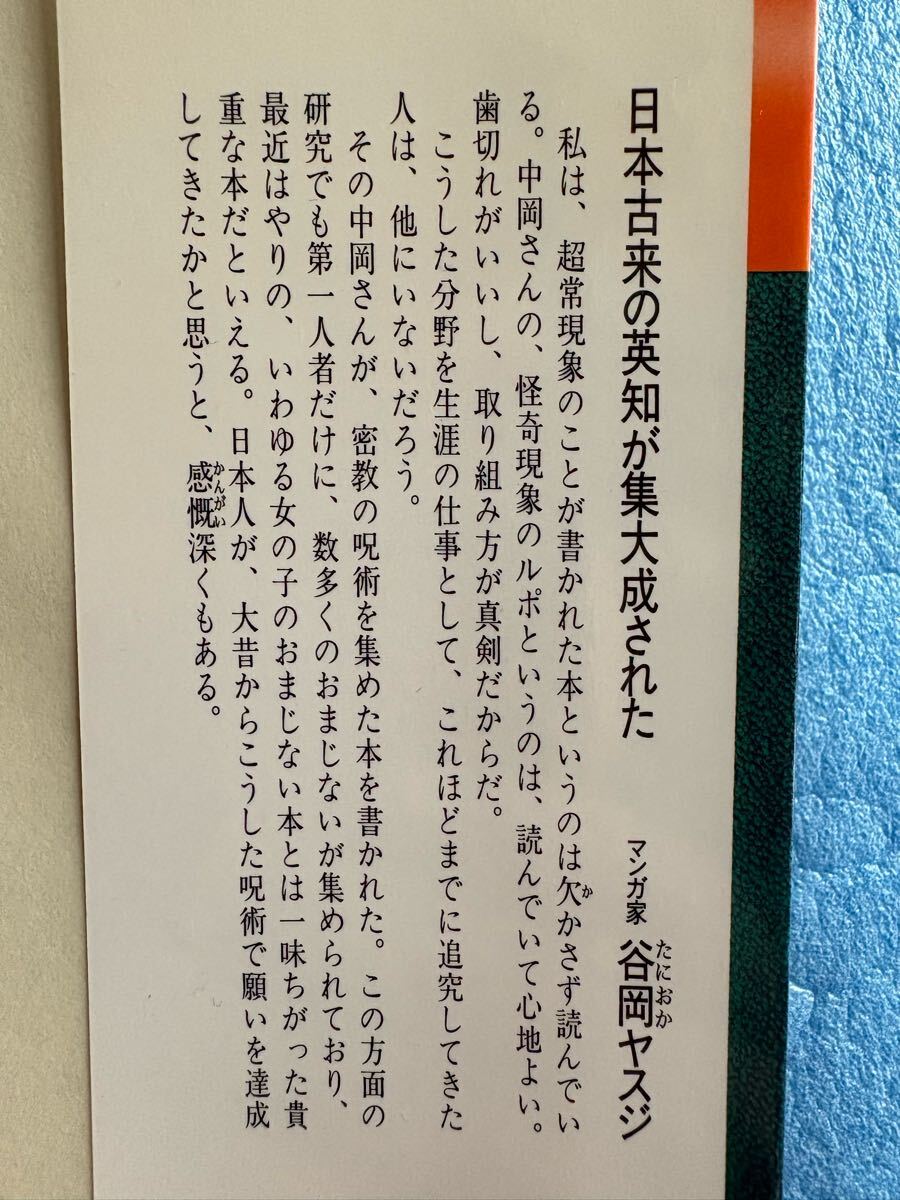 日本古来の英知が集大成された
マンガ家 谷岡ヤスジ
たにおか
私は、超常現象のことが書かれた本というのは欠かさず読んでい
か
る。中岡さんの、怪奇現象のルポというのは、読んでいて心地よい。
歯切れがいいし、取り組み方が真剣だからだ。
こうした分野を生涯の仕事として、これほどまでに追究してきた
人は、他にいないだろう。
その中岡さんが、密教の呪術を集めた本を書かれた。この方面の
研究でも第一人者だけに、数多くのおまじないが集められており、
最近はやりの、いわゆる女の子のおまじない本とは一味ちがった貴
重な本だといえる。日本人が、大昔からこうした呪術で願いを達成
してきたかと思うと、感慨深くもある。
かんがい